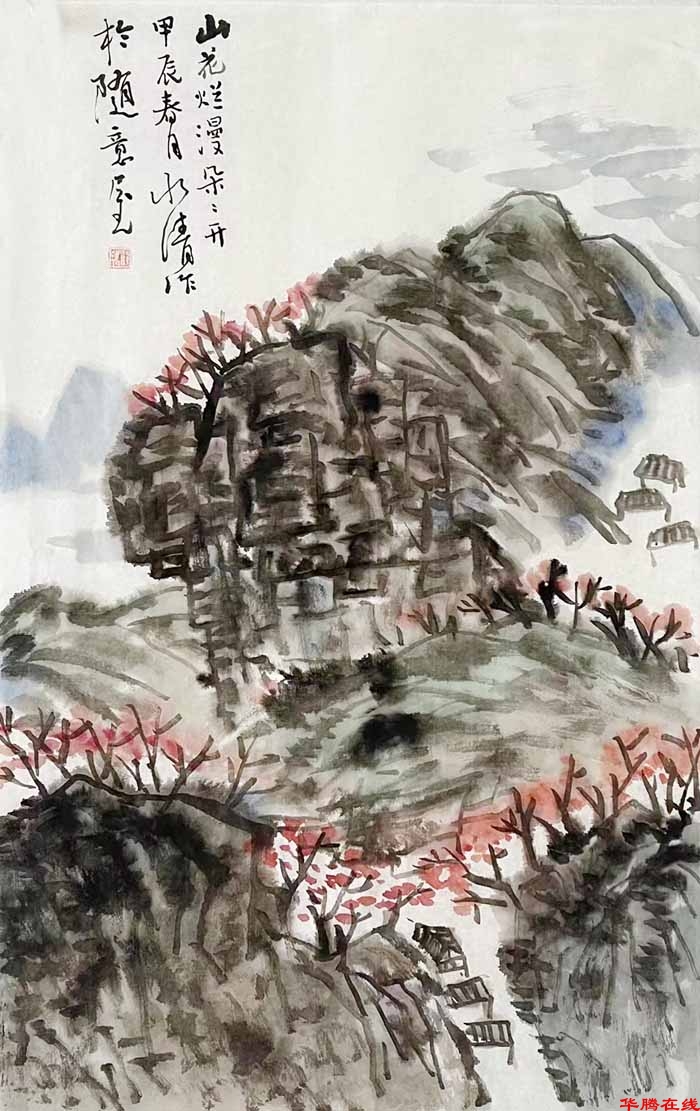 山花烂漫朵〻开
甲辰春月水清作
于随意屋
华腾在线